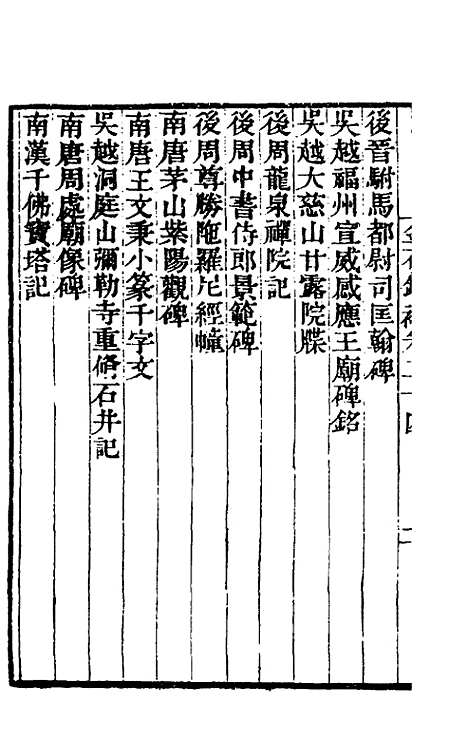 後晉駙馬都尉司匡翰碑
吳越福州宣威感應王廟碑銘
吳越大慈山甘露院牒
後周龍泉禪院記
後周中書侍郎景範碑
後周尊勝陁羅尼經幢
南唐茅山紫陽觀碑
南唐王文秉小篆千字文
吳越洞庭山彌勒寺重脩石井記
南唐周處廟像碑
南漢千佛寶塔記